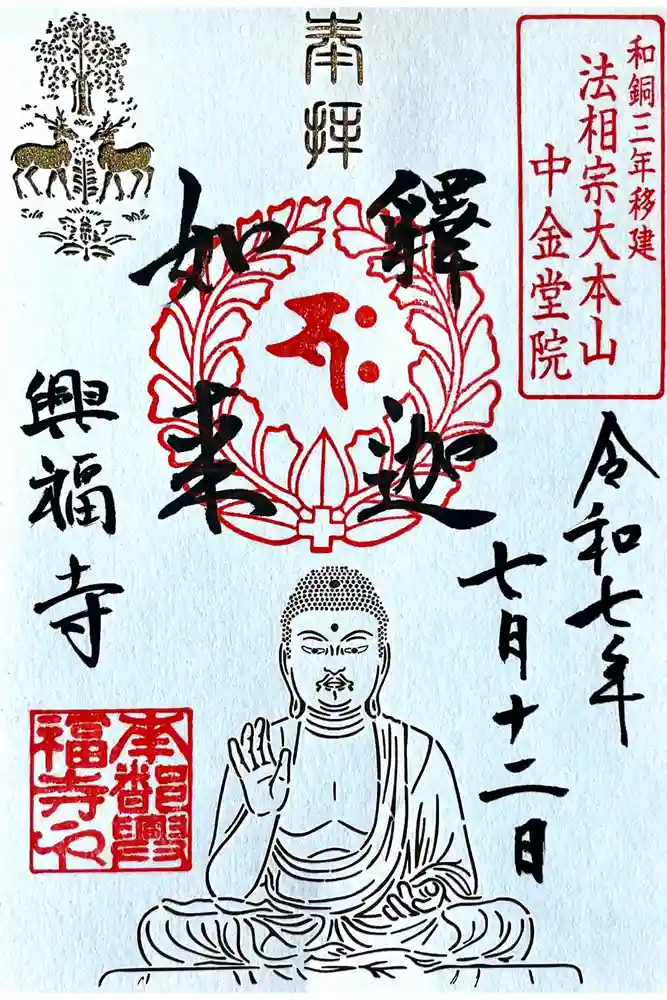 和銅三年移建
法相宗大本山
中金堂院
奉拝
釋迦
如来
令和七年
七月十二日
興福寺
南都興
福寺之印